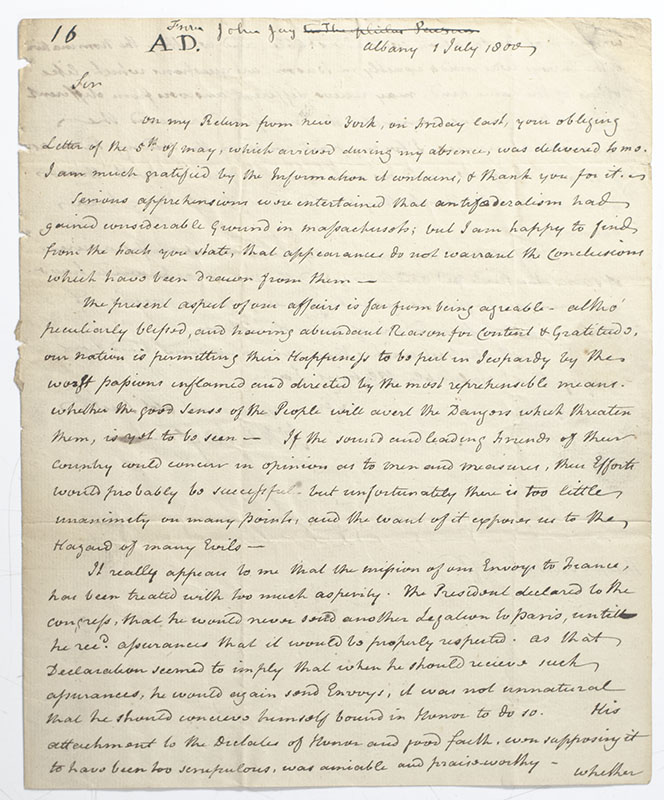 16
From John Jay to Theophilus Parsons
A D.
Albany 1 July 1800
Sir
on my Return from New York, on Friday last, your obliging
Letter of the 5th of may, which arrived during my absence, was delivered to me.
I am much gratified by the Information it contains, & thank you for it. —
Serious apprehensions were entertained that antifœderalism had
gained considerable Ground in massachusets; but I am happy to find
from the Facts you state, that appearances do not warrant the Conclusions
which have been drawn from them —
The present aspect of our affairs is far from being agreable — altho'
peculiarly blessed, and having abundant Reason for Content & Gratitude,
our nation is permitting their Happiness to be put in Jeopardy by the
worst passions inflamed and directed by the most reprehensible means.
whether the good sense of the People will avert the Dangers which threaten
them, is yet to be seen — If the sound and leading Friends of their
Country could concur in opinion as to men and measures, their Efforts
would probably be successful - but unfortunately there is too little
unanimity on many Points, and the want of it exposes us to the
Hazard of many Evils —
It really appears to me that the mission of our Envoys to France,
has been treated with too much asperity. The President declared to the
Congress, that he would never send another Legation to Paris, untill
he recd. assurances that it would be properly respected. as that
Declaration seemed to imply that when he should recieve such
assurances, he would again send Envoys, it was not unnatural
that he should concieve himself bound in Honor to do so. His
attachment to the Dictates of Honor and good faith, even supposing it
to have been too scrupulous, was amiable and praise worthy —
whether